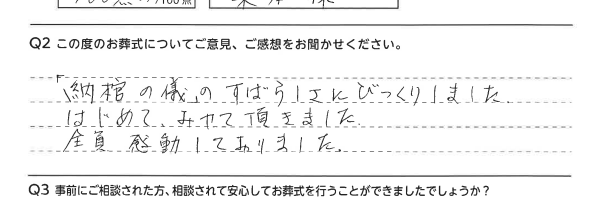 100点
Q2 この度のお葬式についてご意見、ご感想をお聞かせください。
「納棺の儀」のすばらしさにびっくりしました。
はじめて、みせて頂きました。
全員 感動しておりました。
Q3 事前にご相談された方、相談されて安心してお葬式を行うことができましたでしょうか？